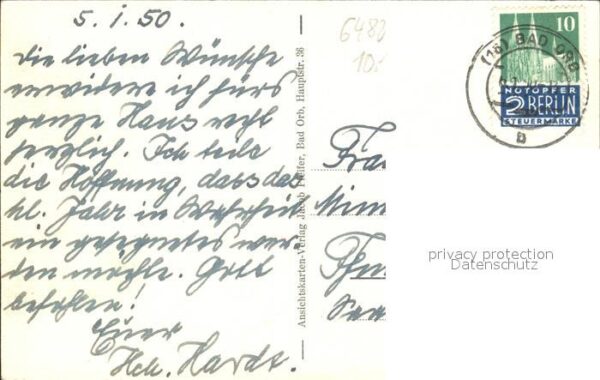 5.1.50.
Die lieben Wünsche
erwidere ich fürs
ganze Haus recht
herzlich. Ich teile
die Hoffnung, dass das
hl. Jahr in Wahrheit
ein gesegnetes wer-
den möchte. Gott
befohlen!
Euer
Hch. Hardt.
Ansichtskarten-Verlag Jacob Pfeifer, Bad Orb, Hauptstr. 36
6482
10.-
10
(16) BAD ORB
b
NOTOPFER
2 BERLIN
STEUERMARKE
Frau
privacy protection
Datenschutz